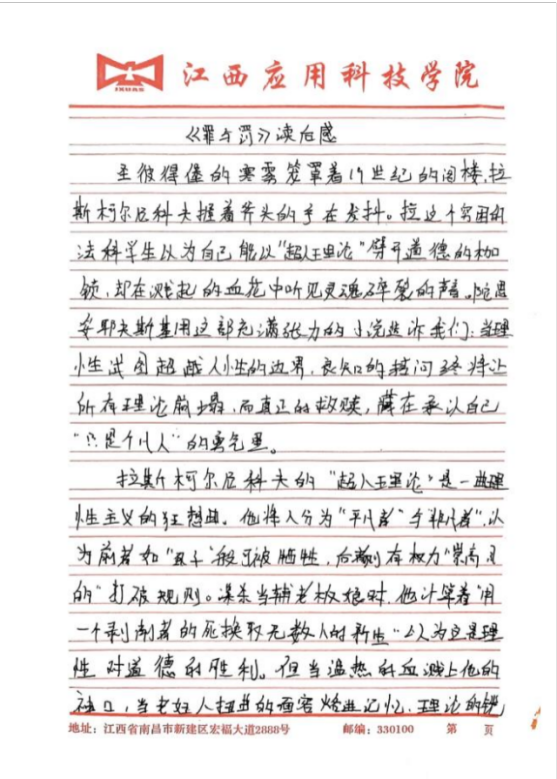 JXUAS
江西应用科技学院
《罪与罚》读后感
圣彼得堡的寒雾笼罩着19世纪的阁楼,拉
斯柯尔尼科夫握着斧头的手在发抖。拉这个穷困的
法科学生以为自己能以“超人理论”劈开道德的枷
锁,却在溅起的血花中听见灵魂碎裂的声音。陀思
妥耶夫斯基用这部充满张力的小说告诉我们:当理
性试图超越人性的边界,良知的拷问终将让
所有理论崩塌,而真正的救赎,藏在承认自己
“只是个凡人”的勇气里。
拉斯柯尔尼科夫的“超人理论”是一曲理
性主义的狂想曲。他将人分为“平凡者”与“非凡者”,认
为前者如“虱子”般可被牺牲,后者则有权为“崇高目
的”打破规则。谋杀当铺老板娘时,他计算着“用
一个剥削者的死换取无数人的新生”以为这是理
性对道德的胜利。但当温热的血溅上他的
袖口,当老妇人扭曲的面容烙进记忆,理论的铠
地址:江西省南昌市新建区宏福大道2888号 邮编:330100 第 页